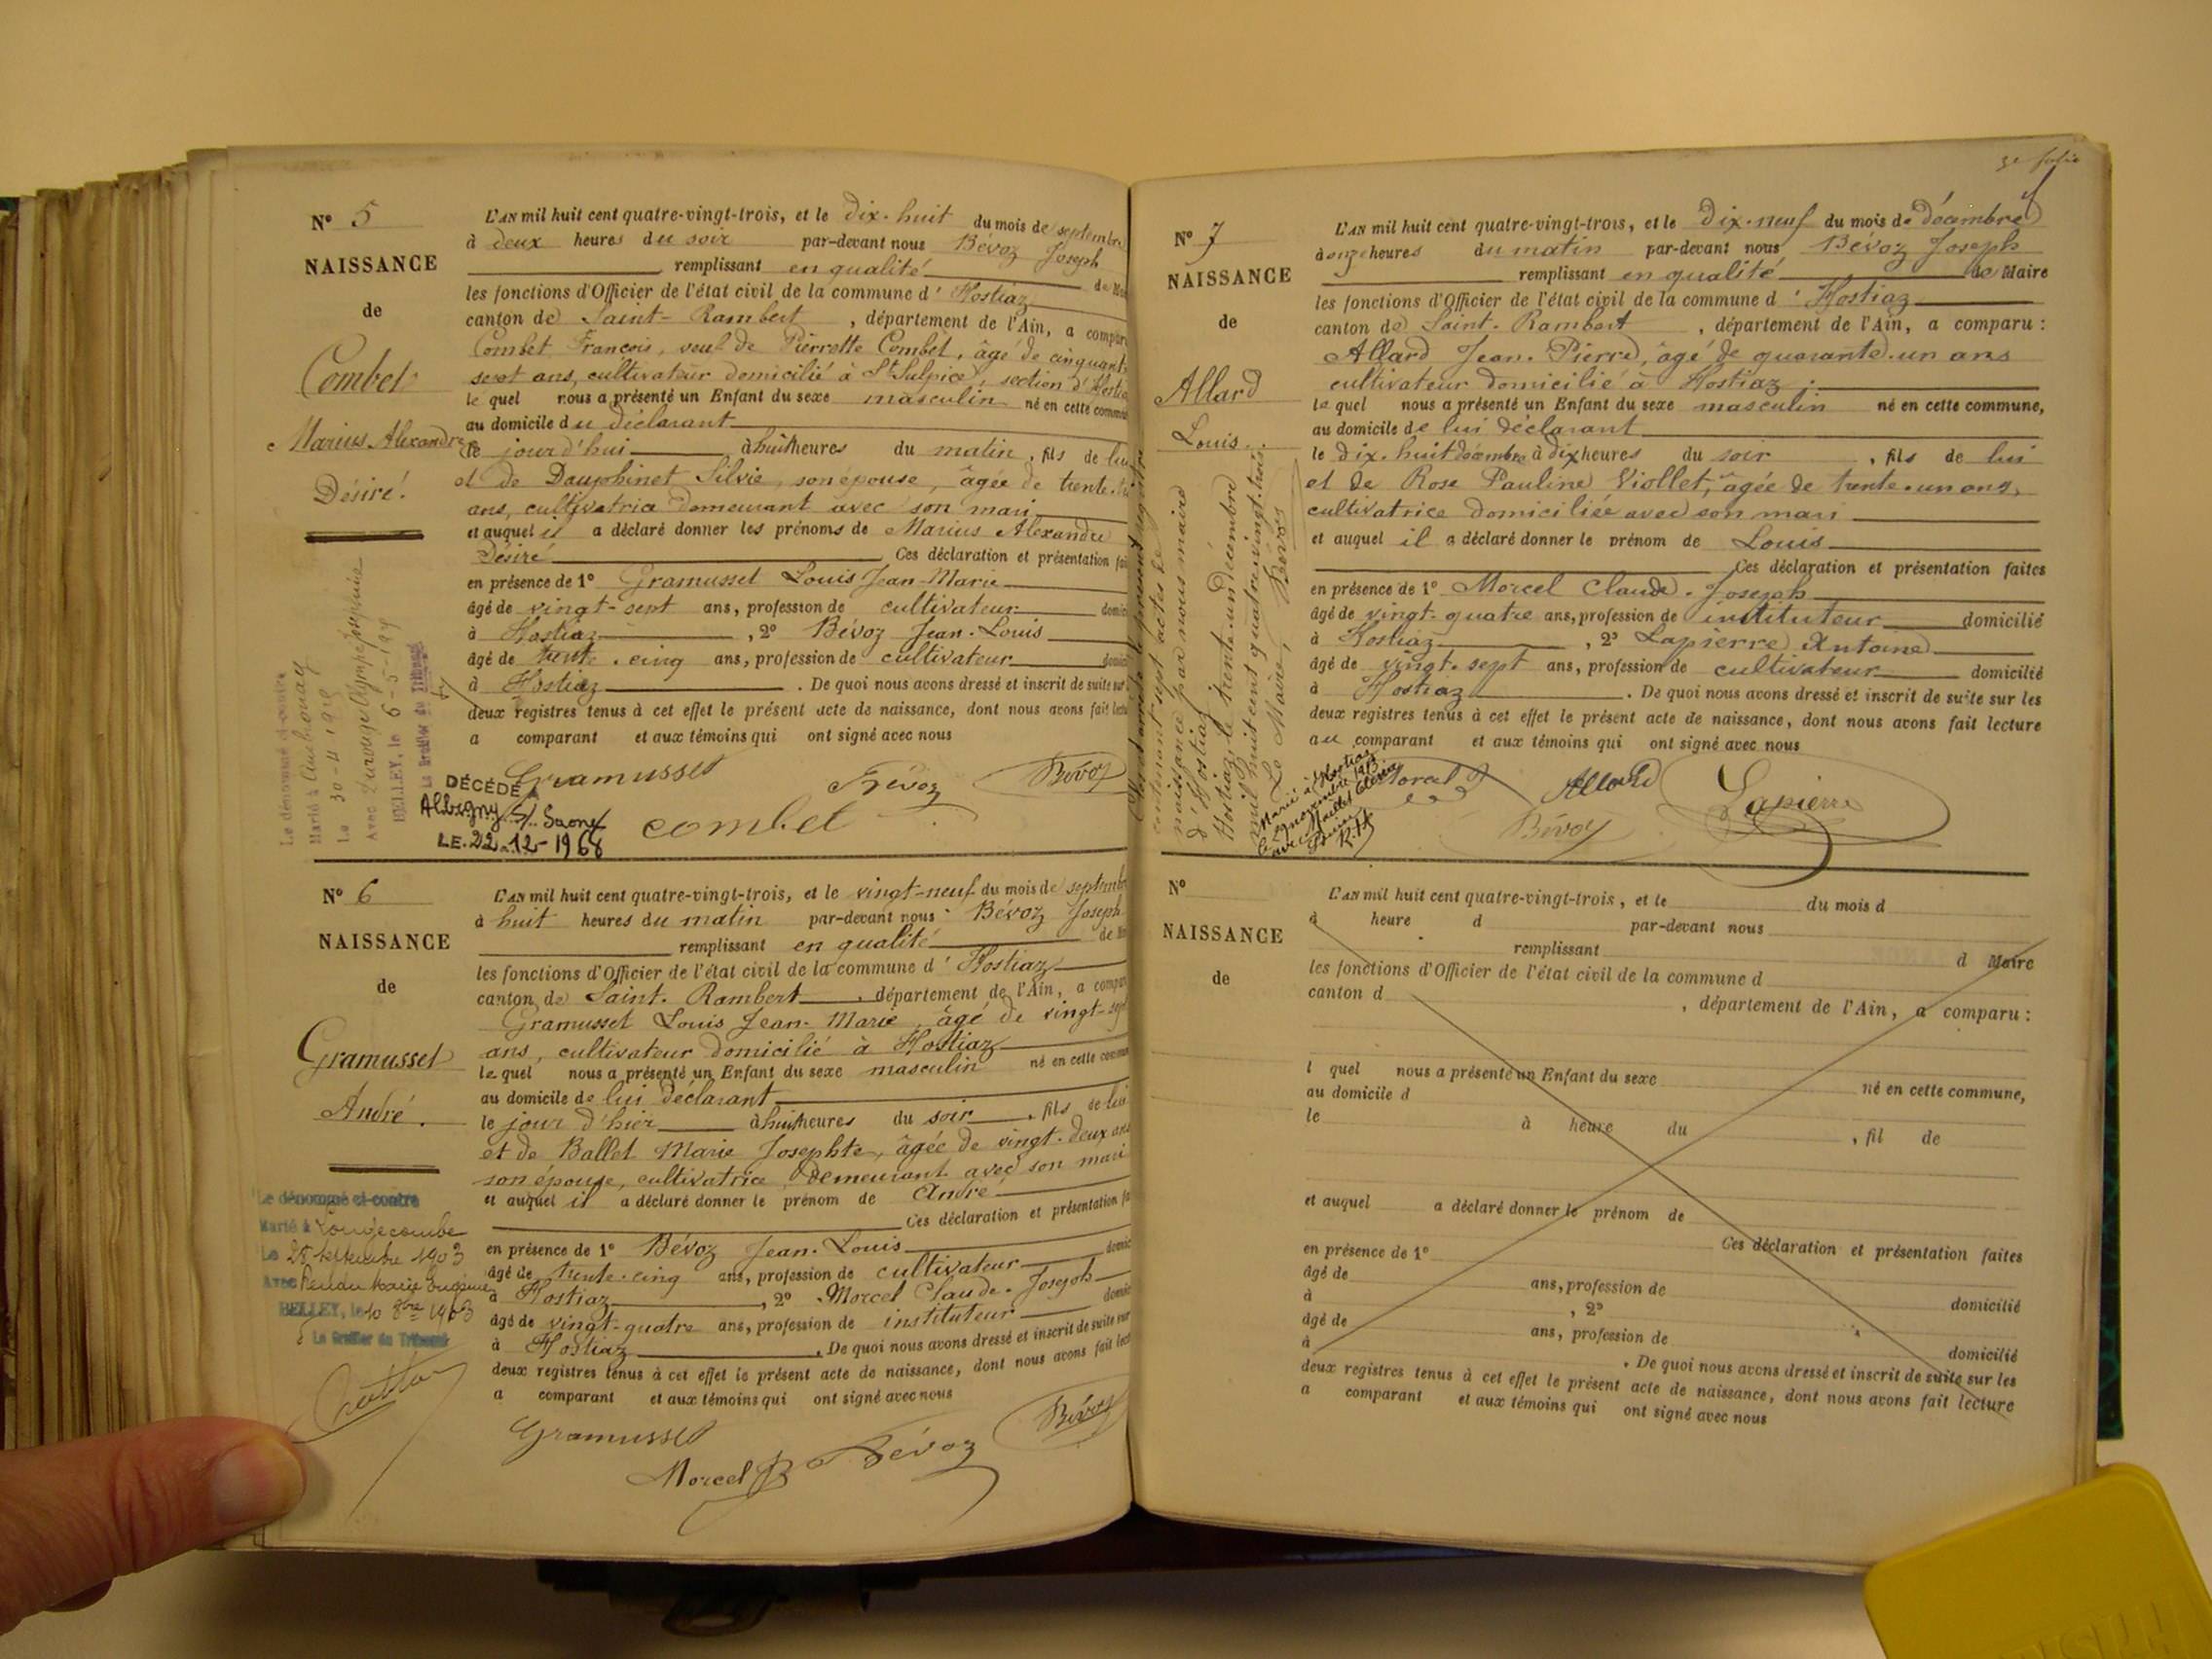 Nº 5
NAISSANCE
de
Combet
Marius Alexandre
Désiré.
L'AN mil huit cent quatre-vingt-trois, et le dix-huit du mois de septembre
à deux heures du soir par-devant nous Bévoz Joseph
remplissant en qualité de
les fonctions d'Officier de l'état civil de la commune d'Hostiaz
canton de Saint-Rambert, département de l'Ain, a
Combet François, veuf de Pierrette Combet, âgé de cinquante
sept ans, cultivateur domicilié à St Sulpice, section d'
le quel nous a présenté un Enfant du sexe masculin né en cette
au domicile du déclarant
le jour d'hui à huit heures du matin, fils de lui
et de Dauphinet Silvie, son épouse, âgée de trente
ans, cultivatrice demeurant avec son mari
et auquel il a déclaré donner les prénoms de Marius Alexandre
Désiré Ces déclaration et présentation
en présence de 1º Gramusset Louis Jean-Marie
âgé de vingt-sept ans, profession de cultivateur
à Hostiaz, 2º Bévoz Jean-Louis
âgé de trente-cinq ans, profession de cultivateur
à Hostiaz. De quoi nous avons dressé et inscrit de suite sur
deux registres tenus à cet effet le présent acte de naissance, dont nous avons fait
a comparant et aux témoins qui ont signé avec nous
Gramusset Bévoz Bévoz
combet
Le dénommé ci-contre
Marié à
Le 30-4-1919
Avec
BELLEY, le 6-5-19
Le Greffier du Tribunal
DÉCÉDÉ A
Albigny S/ Saone
LE. 22-12-1968
Nº 6
NAISSANCE
de
Gramusset
André.
L'AN mil huit cent quatre-vingt-trois, et le vingt-neuf du mois de
à huit heures du matin par-devant nous Bévoz Joseph
remplissant en qualité de
les fonctions d'Officier de l'état civil de la commune d'Hostiaz
canton de Saint-Rambert, département de l'Ain, a
Gramusset Louis Jean-Marie, âgé de vingt-
ans, cultivateur domicilié à Hostiaz
le quel nous a présenté un Enfant du sexe masculin né en cette
au domicile de lui déclarant
le jour d'hier à huit heures du soir, fils de lui
et de Ballet Marie Josephte, âgée de vingt-deux ans
son épouse, cultivatrice, demeurant avec son mari
et auquel il a déclaré donner le prénom de André
Ces déclaration et présentation
en présence de 1º Bévoz Jean-Louis
âgé de trente-cinq ans, profession de cultivateur
à Hostiaz, 2º Morcel Claude-Joseph
âgé de vingt-quatre ans, profession de instituteur
à Hostiaz. De quoi nous avons dressé et inscrit de suite sur
deux registres tenus à cet effet le présent acte de naissance, dont nous avons fait
a comparant et aux témoins qui ont signé avec nous
Gramusset Bévoz
Morcel Bévoz
Le dénommé ci-contre
Marié à Longecombe
Le 25 septembre 1903
Avec Marie
BELLEY, le 10 8bre 1903
Le Greffier du Tribunal
5e folio
Nº 7
NAISSANCE
de
Allard
Louis.
L'AN mil huit cent quatre-vingt-trois, et le dix-neuf du mois de décembre
à onze heures du matin par-devant nous Bévoz Joseph
remplissant en qualité de Maire
les fonctions d'Officier de l'état civil de la commune d'Hostiaz
canton de Saint-Rambert, département de l'Ain, a comparu :
Allard Jean-Pierre, âgé de quarante-un ans
cultivateur domicilié à Hostiaz ;
le quel nous a présenté un Enfant du sexe masculin né en cette commune,
au domicile de lui déclarant
le dix-huit décembre à dix heures du soir, fils de lui
et de Rose Pauline Viollet, âgée de trente-un ans,
cultivatrice domiciliée avec son mari
et auquel il a déclaré donner le prénom de Louis
Ces déclaration et présentation faites
en présence de 1º Morcel Claude-Joseph
âgé de vingt-quatre ans, profession de instituteur domicilié
à Hostiaz, 2º Lapierre Antoine
âgé de vingt-sept ans, profession de cultivateur domicilié
à Hostiaz. De quoi nous avons dressé et inscrit de suite sur les
deux registres tenus à cet effet le présent acte de naissance, dont nous avons fait lecture
au comparant et aux témoins qui ont signé avec nous
Morcel Allard Lapierre
Bévoz
arrêté le présent registre
contenant sept actes de
naissance par nous maire
d'Hostiaz
Hostiaz le trente-un décembre
mil huit cent quatre-vingt-trois
Le Maire, Bévoz
Marié à Hostiaz
le novembre 1913
avec
Nº
NAISSANCE
de
L'AN mil huit cent quatre-vingt-trois, et le du mois d
à heure d par-devant nous
remplissant d Maire
les fonctions d'Officier de l'état civil de la commune d
canton d , département de l'Ain, a comparu :
l quel nous a présenté un Enfant du sexe né en cette commune,
au domicile d
le à heure du , fil de
et auquel a déclaré donner le prénom de
Ces déclaration et présentation faites
en présence de 1º
âgé de ans, profession de domicilié
à , 2º
âgé de ans, profession de domicilié
à . De quoi nous avons dressé et inscrit de suite sur les
deux registres tenus à cet effet le présent acte de naissance, dont nous avons fait lecture
a comparant et aux témoins qui ont signé avec nous